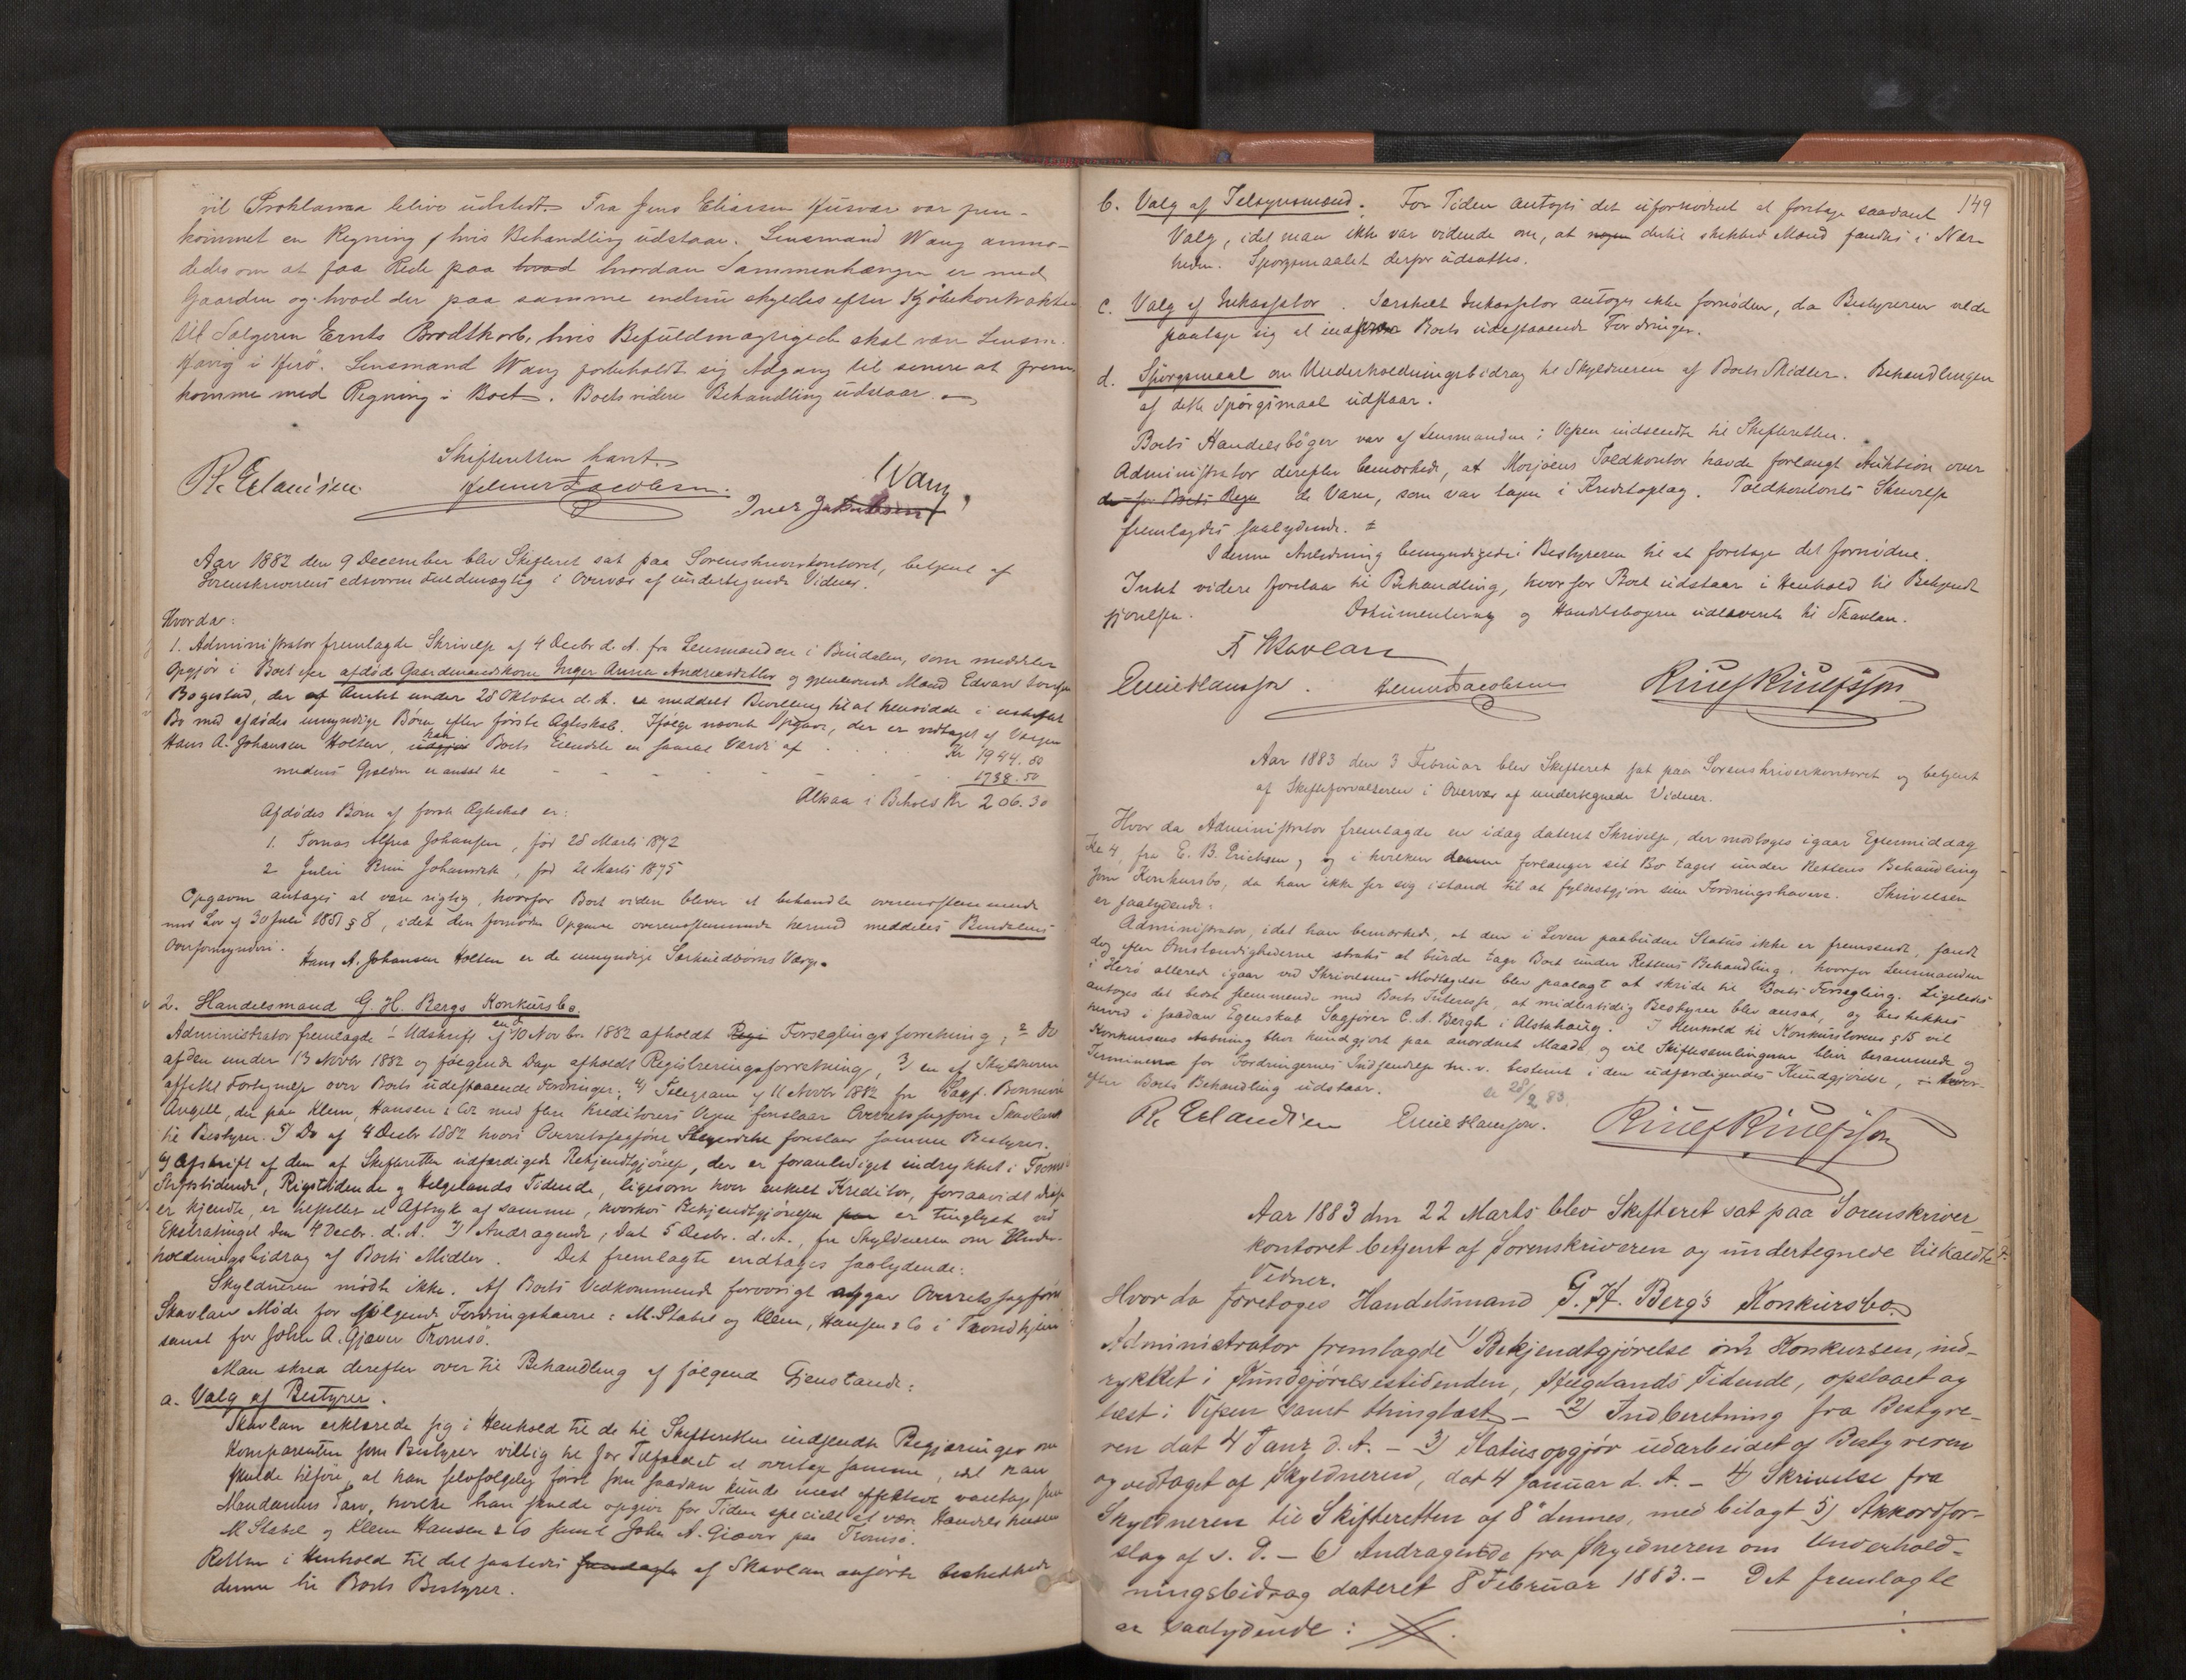 vil Proklama blive udstedt. Fra Jens Eliassen Husvær var frem-
kommet en Regning hvis Behandling udstaar. Lensmand Wang anmo-
dedes om at faa Rede paa hvad hvordan Sammenhængen er med
Gaarden og hvad der paa samme endnu skyldes efter Kjøbekontrakten
til Sælgeren Ernts Brodtkorb, hvis Befuldmægtigede skal være Lensm.
i Herø. Lensmand Wang forbeholdt sig Adgang til senere at frem
komme med Regning i Boet. Boets videre Behandling udstaar.
Skifteretten hævt.
R. Erlandsen. Helmer Jacobsen. Wang,
Iver Jakobsen
Aar 1882 den 9 December blev Skifteret sat paa Sorenskriverkontoret, betjent af
Sorenskriverens edsvorne Fuldmægtig i Overvær af undertegnede Vidner.
Hvor da:
1. Administrator fremlagde Skrivelse af 4 Decbr d. A. fra Lensmanden i Bindalen, som meddeler
Opgjør i Boet efter afdøde Gaardmandskone Inger Anna Andreasdatter og gjenlevende Mand Edvard
Bogestad, der af Amtet under 28 Oktober d. A. er meddelt Bevilling til at hensidde i uskiftet
Bo med afdødes umyndige Børn efter første Ægteskab. Ifølge nævnte Opgave, der er vedtaget af Værgen
Hans A. Johansen Holten, udgjør har Boets Eiendele en samlet Værdi af Kr 1944.80
medens Gjælden er ansat til 1738.50
Altsaa i Behold Kr 206.30
Afdødes Børn af første Ægteskab er:
1. Tomas Alfred Johansen, fød 28 Marts 1872
2. Julie Johansdtr, fød 21 Marts 1875
Opgaven antages at være rigtig, hvorfor Boet videre bliver at behandle overensstemmende
med Lov af 30 Juli 1851 § 8, idet den fornødne Opgave overensstemmende hermed meddeles Bindalens
Overformynderi.
Hans A. Johansen Holten er de umyndige Særkuldbørns Værge.
2. Handelsmand G. H. Bergs Konkursbo.
Administrator fremlagde 1 Udskrift af en 10 Novbr. 1882 afholdt Regi Forseglingsforretning, 2 Do
af den under 13 Novbr 1882 og følgende Dage afholdt Registreringsforretning, 3/ en af Skyldneren
affattet Fortegnelse over Boets udestaaende Fordringer; 4/ Telegram af 11 Novbr 1882 fra Sagf. Bonnevie
Angell, der paa Klem, Hansen & Co med flere Kreditorers Vegne foreslaar Overretssagfører Skavlan
til Bestyrer. 5/ Do af 4 Decbr 1882 hvori Overretssagfører foreslaar samme Bestyrer.
6/ Afskrift af den af Skifteretten udfærdigede Bekjendtgjørelse, der er foranlediget indrykket i Tromsø
Stiftstidende, Rigstidende og Helgelands Tidende, ligesom hver enkelt Kreditor, forsaavidt disse
er kjendte, er tilstillet et Aftryk af samme, hvorhos Bekjendtgjørelsen er tinglyst ved
Extratinget den 4 Decbr. d. A. 7/ Andragende, dat 5 Decbr. d. A., fra Skyldneren om Under-
holdningsbidrag af Boets Midler. Det fremlagte endtages saalydende:
Skyldneren mødte ikke. Af Boets Vedkommende forøvrigt afgav Overretssagfører
Skavlan Møde for følgende Fordringshavere: M. Stabel og Klem, Hansen & Co i Trondhjem
samt for John A. Gjæver Tromsø.
Man skred derefter over til Behandling af følgende Gjenstande:
a. Valg af Bestyrer.
Skavlan erklærede sig i Henhold til de til Skifteretten indsendte Begjæringer om
Komparenten som Bestyrer villig til for Tilfældet at overtage samme, idet han
skulde tilføie, at han selvfølgelig først som saadan kunde mest effektivt varetage sine
Mandanters Tarv, hvilke han skulde opgive for Tiden specielt at være Handelshusene
M Stabel og Klem Hansen & Co samt John A. Giæver paa Tromsø.
Retten i Henhold til det saaledes fremlagte af Skavlan anførte beskikkede
denne til Boets Bestyrer.
149
b. Valg af Tilsynsmænd. For Tiden antoges det ufornødent at foretage saadant
Valg, idet man ikke var vidende om, at nogen dertil skikket Mand fandtes i Nær-
heden. Spørgsmaalet derfor udsattes.
c. Valg af Inkassator. Særskilt Inkassator antoges ikke fornøden, da Bestyreren vilde
paatage sig at inddrive Boets udestaaende Fordringer.
d. Spørgsmaal om Underholdningsbidrag til Skyldneren af Boets Midler. Behandlingen
af dette Spørgsmaal udstaar.
Boets Handelsbøger var af Lensmanden i Vefsen indsendte til Skifteretten.
Administrator derefter bemærkede, at Mosjøens Toldkontor havde forlangt Auktion over
de for Boets Regn de Varer, som var tagne i Kreditoplag. Toldkontorets Skrivelse
fremlagdes saalydende.
I denne Anledning bemyndigedes Bestyreren til at foretage det fornødne.
Intet videre forelaa til Behandling, hvorfor Boet udstaar i Henhold til Bekjendt
gjørelsen. Dokumenterne og Handelsbøgerne udleverede til Skavlan.
Skavlan
Emil Hansen. Helmer Jacobsen Riulf Riulfsson
Aar 1883 den 3 Februar blev Skifteret sat paa Sorenskriverkontoret og betjent
af Skifteforvalteren i Overvær af undertegnede Vidner.
Hvor da Administrator fremlagde en idag dateret Skrivelse, der modtoges igaar Eftermiddag
Kl 4, fra E. B. Erichsen, og i hvilken denne forlanger sit Bo taget under Rettens Behandling
som Konkursbo, da han ikke ser sig istand til at fyldestgjøre sine Fordringshavere. Skrivelsen
er saalydende:
Administrator, idet han bemærkede, at den i Loven paabudne Status ikke er fremsendt, fandt
dog efter Omstændighederne straks at burde tage Boet under Rettens Behandling, hvorfor Lensmanden
i Herø allerede igaar ved Skrivelsens Modtagelse blev paalagt at skride til Boets Forsegling. Ligeledes
antoges det bedst stemmende med Boets Interesse, at midlertidig Bestyrer blev ansat, og beskikkes
herved i saadan Egenskab Sagfører C. A. Bergh i Alstahaug. I Henhold til Konkurslovens § 15 vil
Konkursens Aabning blive kundgjort paa anordnet Maade og vil Skiftesamlingerne blive berammede og
Terminerne for Fordringernes Indsendelse m. v. bestemt i den udfærdigendes Kundgjørelse, hvor-
efter Boets Behandling udstaar.
se 28/2 83.
R. Erlandsen Emil Hansen. Riulf Riulfsson
Aar 1883 den 22 Marts blev Skifteret sat paa Sorenskriver
kontoret betjent af Sorenskriveren og undertegnede tilkaldte
Vidner.
Hvor da foretoges Handelsmand G. H. Berg's Konkursbo.
Administrator fremlagde 1) Bekjendtgjørelse om Konkursen, ind-
rykket i Kundgjørelsestidenden, Helgelands Tidende, opslaaet og
læst i Vefsen samt thinglæst – 2) Indberetning fra Bestyre-
ren dat 4 Janr. d. A. – 3) Statusopgjør udarbeidet af Bestyreren
og vedtaget af Skyldneren, dat 4 Januar d. A. – 4) Skrivelse fra
Skyldneren til Skifteretten af 8de dennes, med bilagt 5) Akkordfor-
slag af s. D. – 6) Andragende fra Skyldneren om Underhold-
ningsbidrag dateret 8 Februar 1883. – Det fremlagte
er saalydende: